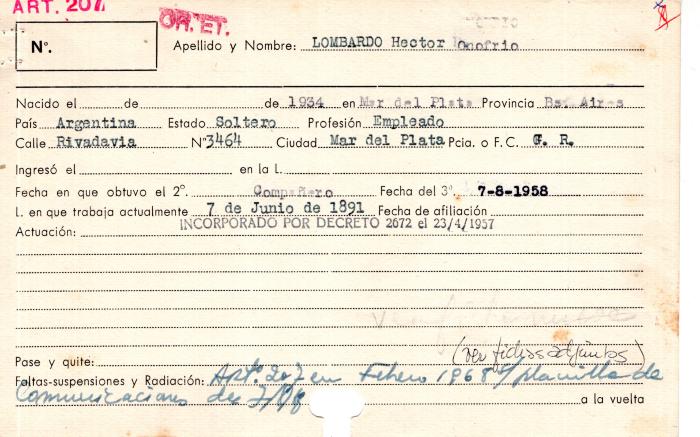 ART. 207
GR. ET.
Nº.
Apellido y Nombre: LOMBARDO Hector Onofrio
Nacido el de de 1934 en Mar del Plata Provincia Bs. Aires
País Argentina Estado Soltero Profesión Empleado
Calle Rivadavia Nº 3464 Ciudad Mar del Plata Pcia. o F. C. G. R.
Ingresó el en la L.
Fecha en que obtuvo el 2º. Compañero Fecha del 3º. 7-8-1958
L. en que trabaja actualmente 7 de Junio de 1891 Fecha de afiliación
INCORPORADO POR DECRETO 2672 el 23/4/1957
Actuación:
(ver fichas adjuntas)
Pase y quite:
Faltas-suspensiones y Radiación: Artº. 207 en Febrero 1968 s/planilla de
Comunicaciones de
a la vuelta